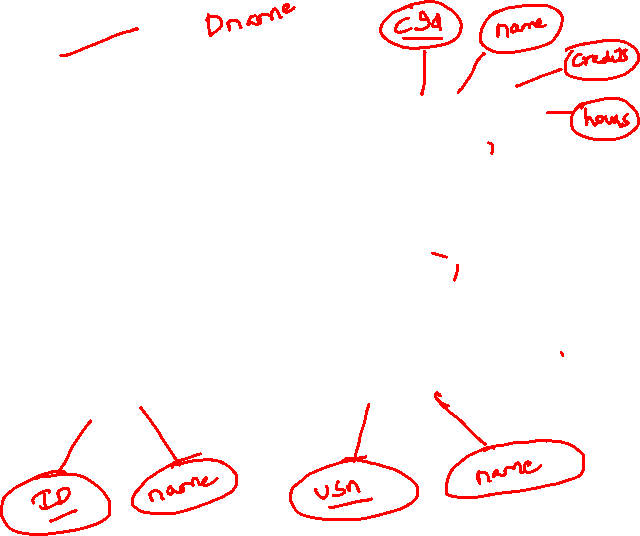 Dname
name
credits
hours
ID
name
usn
name